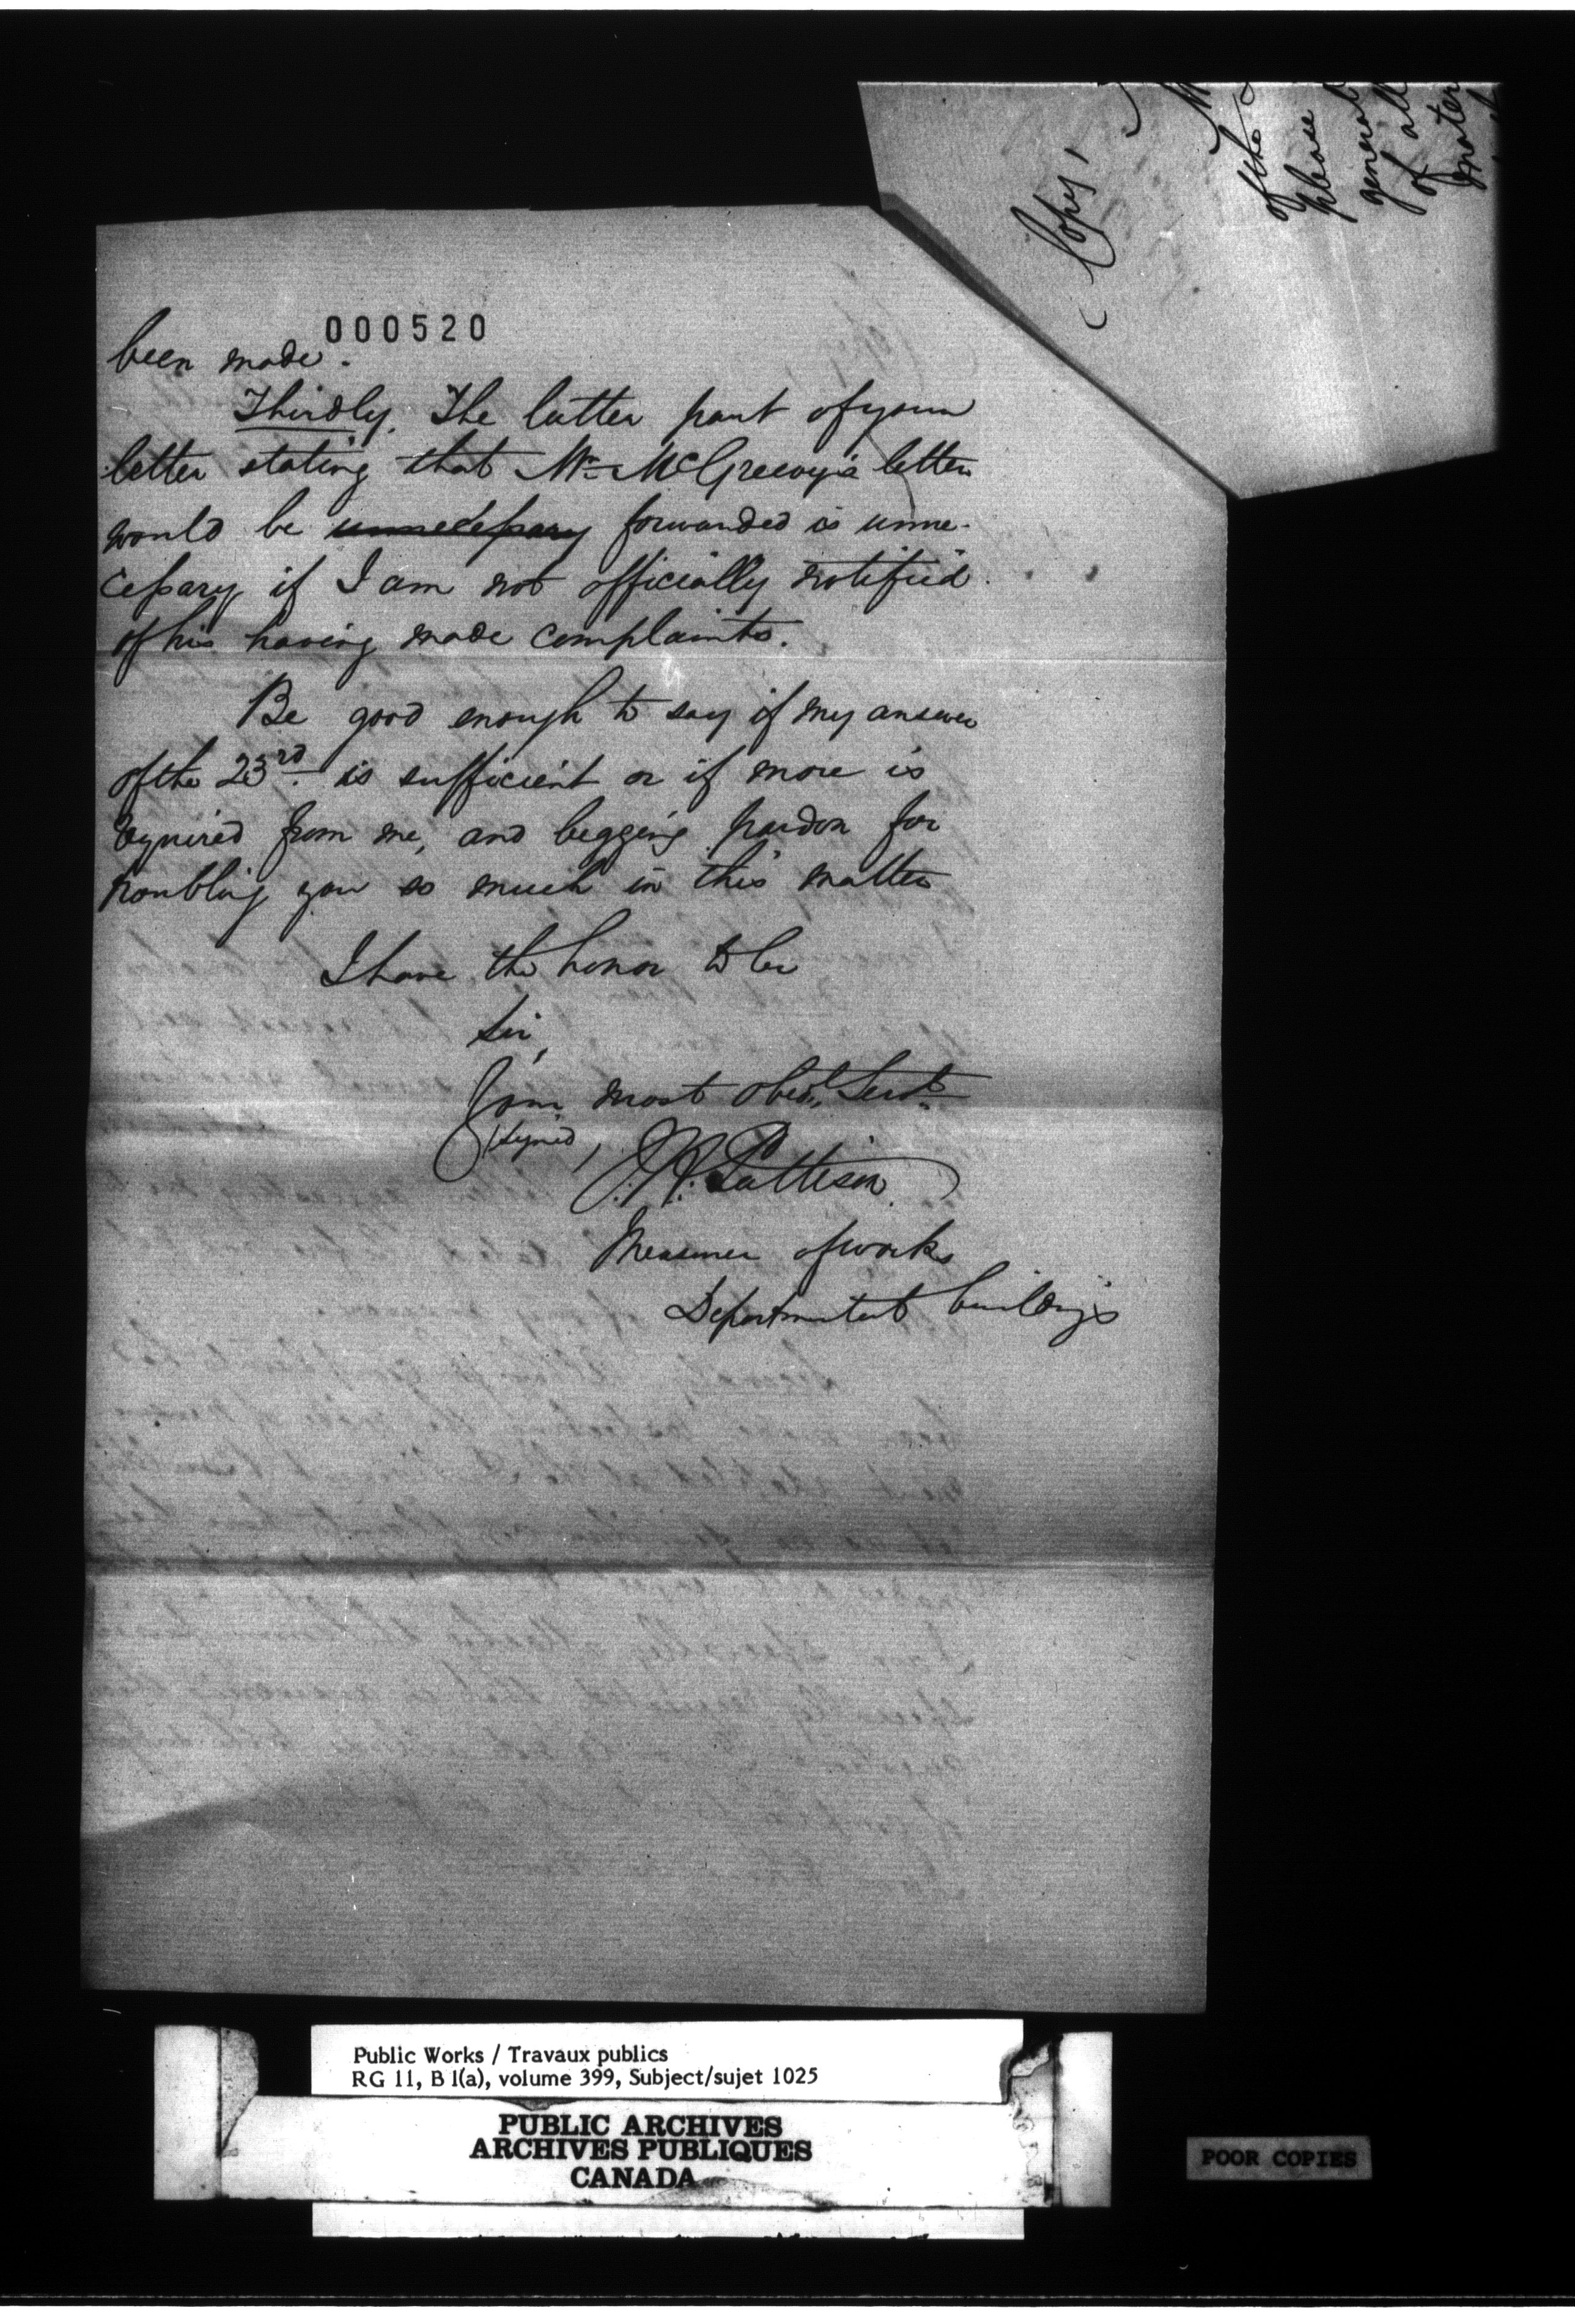 000520
been made.
Thirdly. The latter part of your
letter stating that Mr. McGreevy's letter
would be unnecessary forwarded is unne-
cessary if I am not officially notified
of his having made complaints.
Be good enough to say if my answer
of the 23rd. is sufficient or if more is
required from me, and begging pardon for
troubling you so much in this matter
I have the honor to be
Sir,
Your most obedt. Servt.
(signed) J. R. Pattison
Measurer of works
Departmental buildings
(Copy)
of the
please
general
of all
mater
Public Works / Travaux publics
RG 11, B 1(a), volume 399, Subject/sujet 1025
PUBLIC ARCHIVES
ARCHIVES PUBLIQUES
CANADA
POOR COPIES